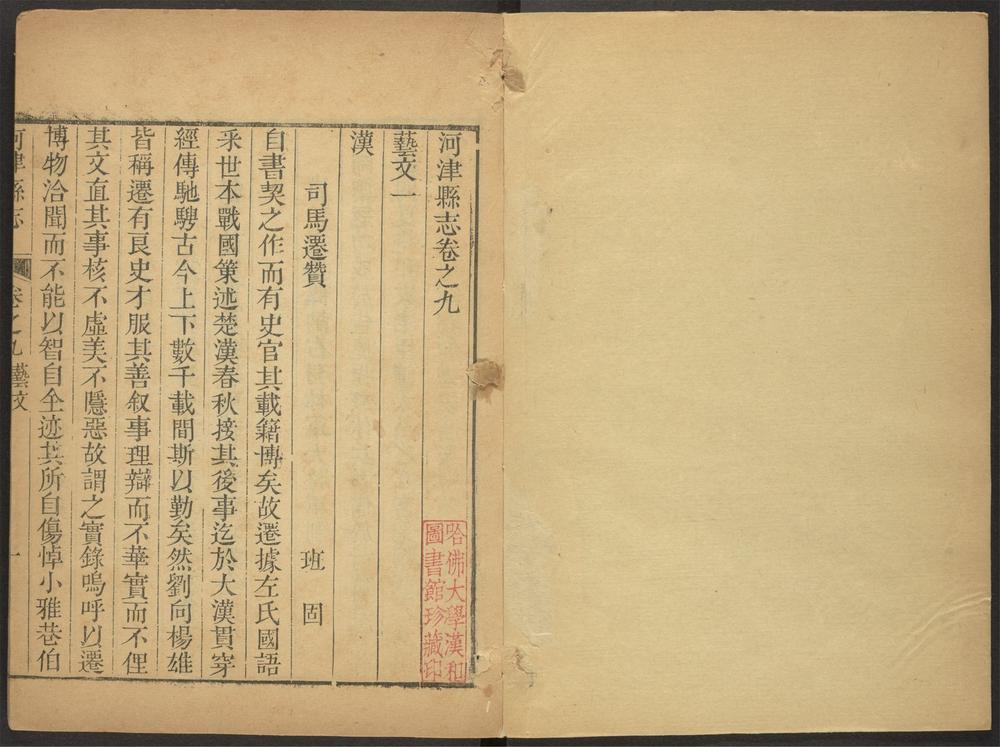 河津縣志卷之九
藝文一
漢
司馬遷贊 班固
自書契之作而有史官其載籍博矣故遷據左氏國語
采世本戰國策述楚漢春秋接其後事迄於大漢貫穿
經傳馳騁古今上下數千載間斯以勤矣然劉向楊雄
皆稱遷有良史才服其善叙事理辯而不華實而不俚
其文直其事核不虛美不隱惡故謂之實錄嗚呼以遷
博物洽聞而不能以智自全迹其所自傷悼小雅巷伯
河津縣志 卷之九藝文 一
哈佛大學漢和
圖書館珍藏印